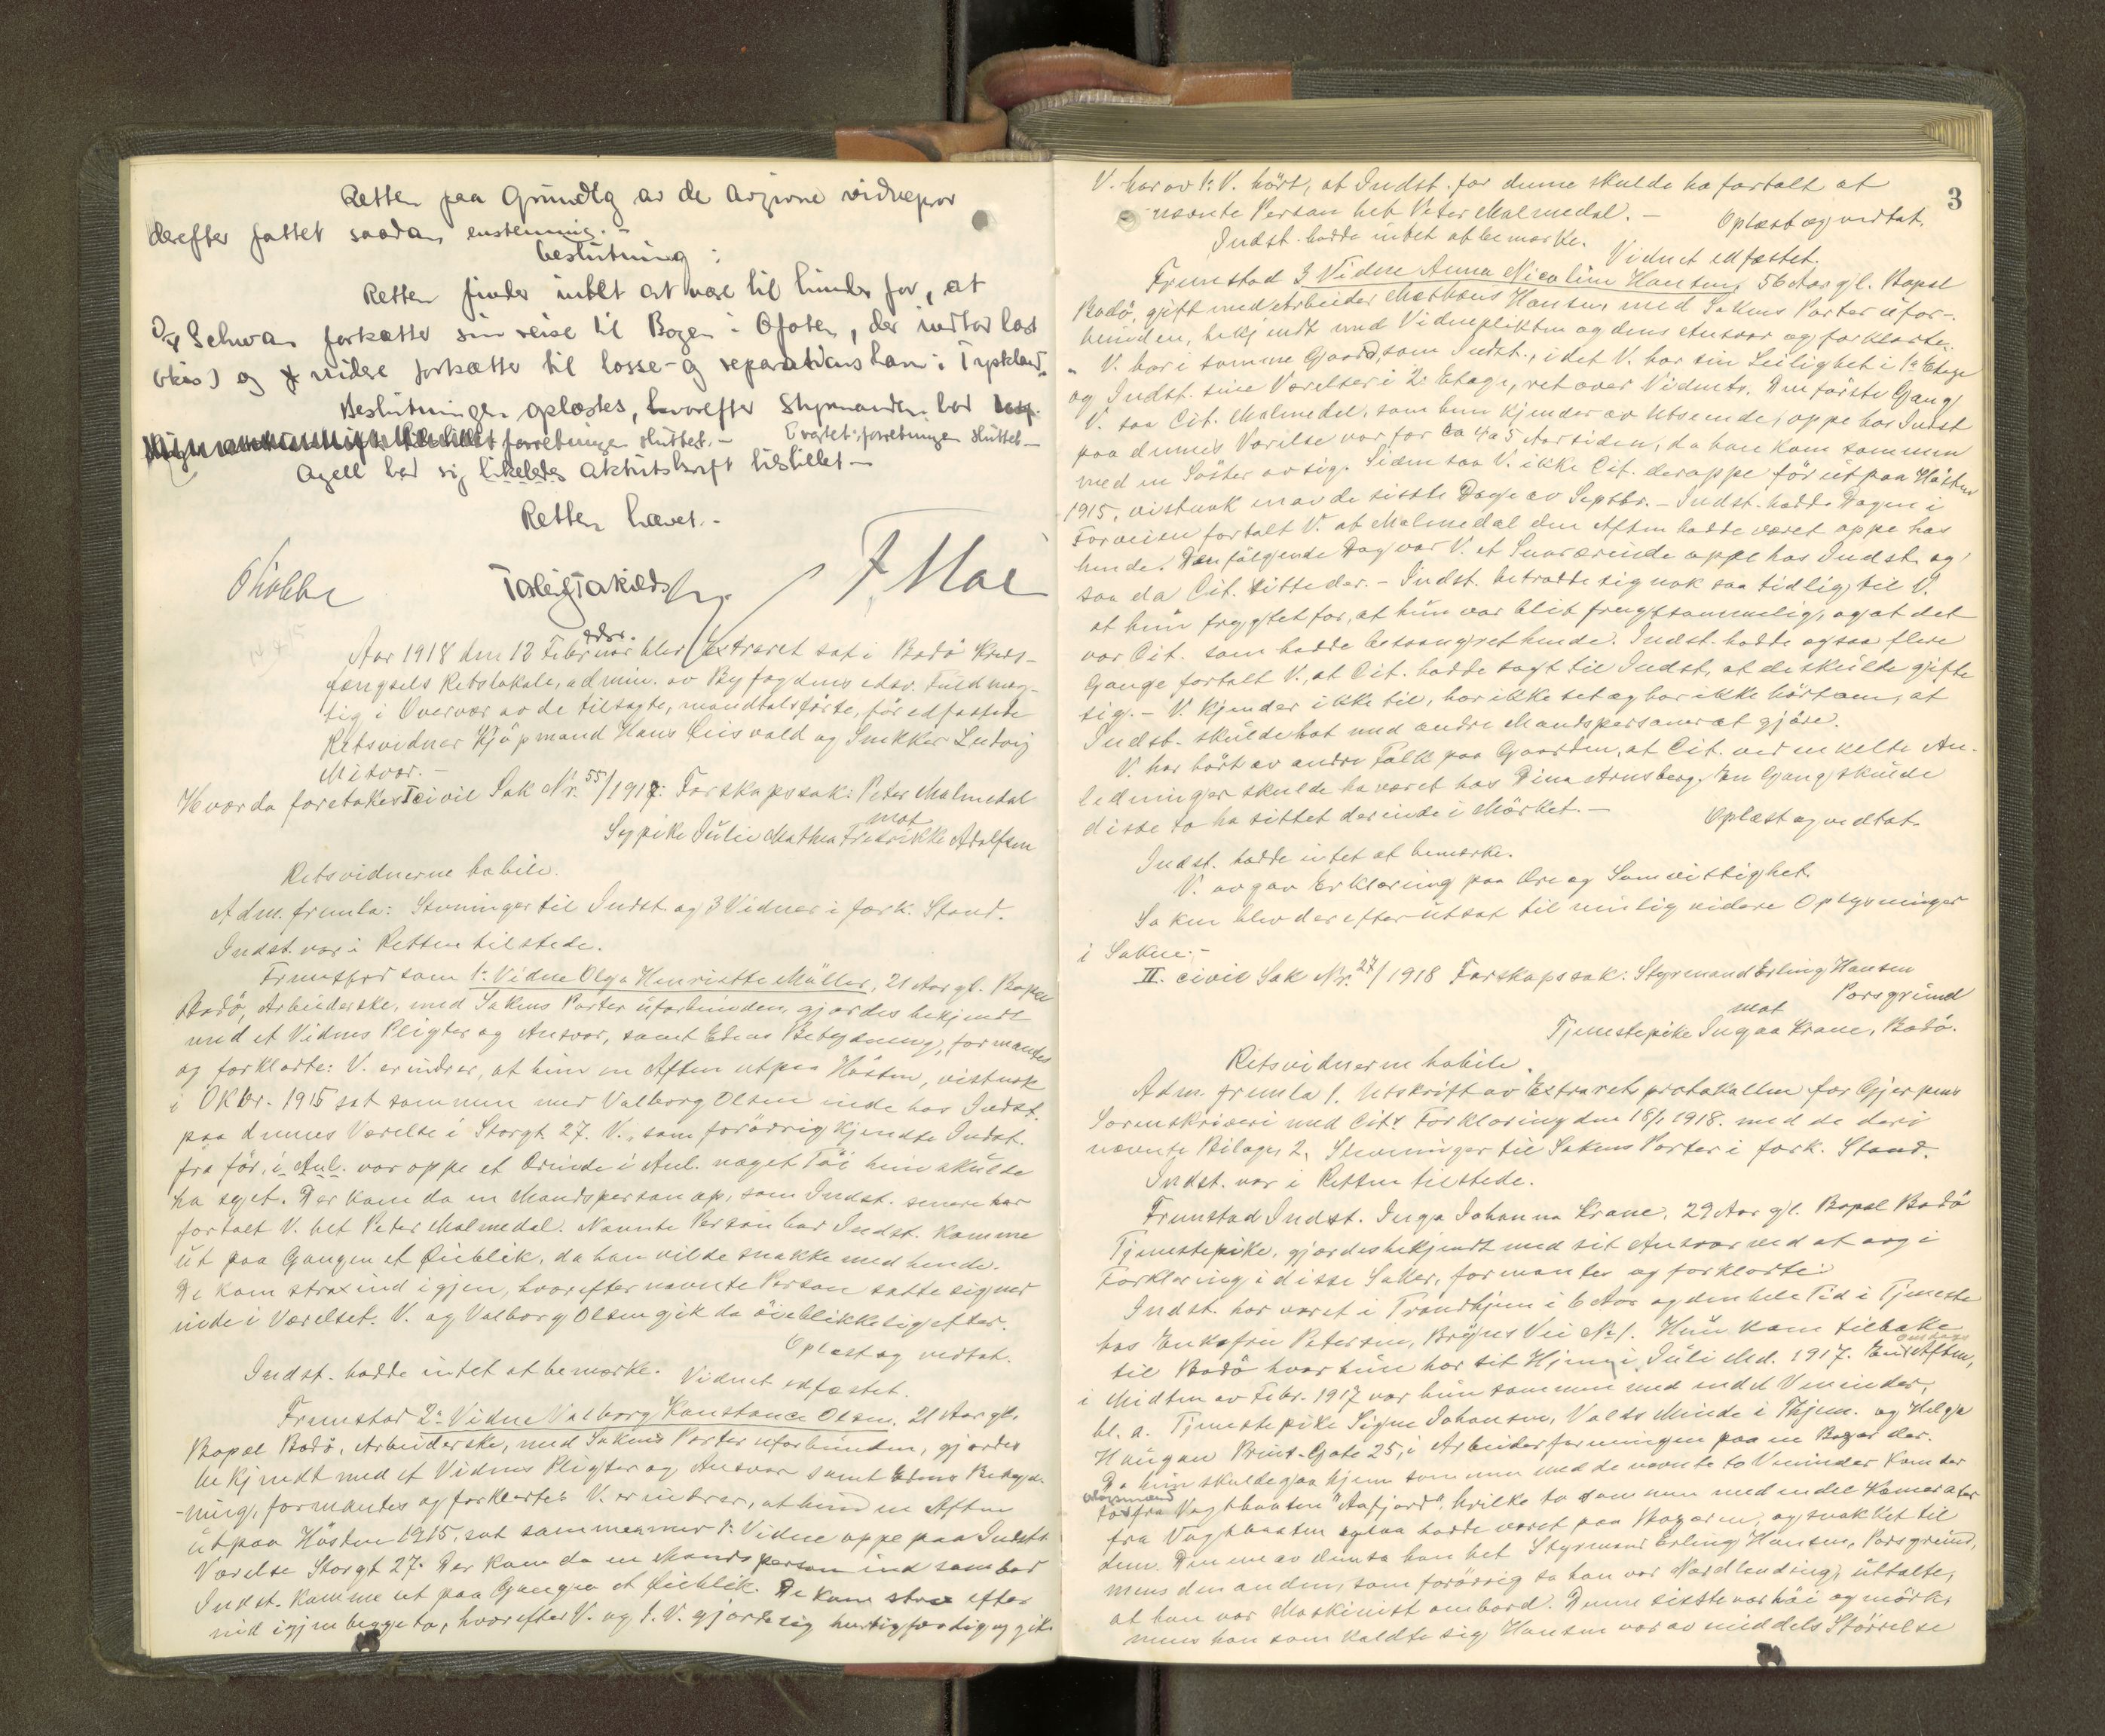 Retten paa Grundlg av de avgivne vidneprov
derefter fattet saadan enstemmig
beslutning:
Retten finder intet at være til hinder for, at
D/S Schwan fortsætter sin reise til Bogen i Ofoten, der indtar last
(kis) og videre fortsætter til losse- og reparationshavn i Tyskland.
Beslutningen oplæstes, hvorefter Styrmanden bad
forretningen sluttet. -
Agell bad sig likeledes aktutskrift tilstillet -
Retten hævet. -
F Moe
Aar 1918 den 12 Februar blev Extraret sat i Bodø Kreds-
fængsels Retslokale, admin. av Byfogdens edsv. Fuldmæg-
tig i Overvær av de tilsagte, mandtalsførte, før edfæstede
Retsvidner Kjøpmand Hans Quisvold og Snekker Ludvig
Mitvær. -
Hvorda foretokes I civil Sak Nr. 55/1917: Farskapssak: Peter Malmedal
mot
Sypike Julie Mathea Fredrikke Adolfsen
Retsvidnerne habile.
Adm. fremla: Stevninger til Indst. og 3 Vidner i fork. Stand.
Indst. var i Retten tilstede.
Fremstod som 1ste Vidne Olga Henriette Müller, 21 Aar gl. Bopæl
Bodø, Arbeiderske, med Sakens Parter uforbunden, gjordes bekjendt
med et Vidnes Pligter og Ansvar, samt Edens Betydning, formantes
og forklarte: V. erindrer, at hun en Aften utpaa Høsten, vistnok
i Oktbr. 1915 sat sammen med Valborg Olsen inde hos Indst.
paa dennes Værelse i Storgt. 27. V., som forøvrig kjendte Indst.
fra før, i Anl. var oppe et Ærinde i Anl. noget Tøi hun skulde
ha syet. Der kom da en Mandsperson op, som Indst. senere har
fortalt V. het Peter Malmedal. Nævnte Person bad Indst. komme
ut paa Gangen et Øieblik, da han vilde snakke med hende.
De kom strax ind igjen, hvorefter nævnte Person satte sig ned
inde i Værelset. V. og Valborg Olsen gik da øieblikkelig efter.
Oplæst og vedtat.
Indst. hadde intet at bemærke. Vidnet edfæstet.
Fremstod 2det Vidne Valborg Konstance Olsen, 21 Aar gl.
Bopæl Bodø, Arbeiderske, med Sakens Parter uforbunden, gjordes
bekjendt med et Vidnes Pligter og Ansvar samt Edens Betyd-
-ning, formantes og forklarte: V. erindrer, at hun en Aften
utpaa Høsten 1915, sat sammen med 1ste Vidne oppe paa Indst's
Værelse Storgt 27. Der kom da en Mandsperson ind som bad
Indst. komme ut paa Gangen et Øieblik. De kom strax efter
ind igjen begge to, hvorefter V. og 1. V. gjorde sig hurtig færdig og gik.
3
V. har av 1ste V. hørt, at Indst. for denne skulde ha fortalt at
nævnte Person het Peter Malmedal. - Oplæst og vedtat.
Indst. hadde intet at bemærke. Vidnet edfæstet.
Fremstod 3 Vidne Anna Nicoline Hansen, 56 Aar gl. Bopæl
Bodø, gift med Arbeider Mathæus Hansen, med Sakens Parter ufor-
bunden, bekjendt med Vidneplikten og dens Ansvar og forklarte:
V. bor i samme Gaard, som Indst., idet V. har sin Leilighet i 1ste Etage
og Indst. sine Værelser i 2den Etage, ret over Vidnets. Den første Gang
V. saa Cit. Malmedal, som hun kjender av Utseende, oppe hos Indst
paa dennes Værelse var for ca 4 a 5 Aar siden, da han kom sammen
med en Søster av sig. Siden saa V. ikke Cit. deroppe før ut paa Høsten
1915, vistnok en av de sisste Dage av Septbr. - Indst. hadde Dagen i
Forveien fortalt V. at Malmedal den Aften hadde været oppe hos
hende. Den følgende Dag var V. et Snarærinde oppe hos Indst. og
saa da Cit. sitte der. - Indst. betrodde sig nok saa tidlig til V.
at hun frygtet for, at hun var blit frugtsommelig, og at det
var Cit. som hadde besvangret hende. Indst. hadde ogsaa flere
Gange fortalt V., at Cit. hadde sagt til Indst, at de skulde gifte
sig. - V. kjender ikke til, har ikke set og har ikke hørt om, at
Indst. skulde hat med andre Mandspersoner at gjøre.
V. har hørt av andre Folk paa Gaarden, at Cit. ved enkelte An-
ledninger skulde ha været hos Dina Arnsberg. En Gang skulde
disse to ha sittet derinde i Mørket. - Oplæst og vedtat.
Indst. hadde intet at bemærke.
V. avgav Erklæring paa Ære og Samvittighet.
Saken blev derefter utsat til mulig videre Oplysninger
i Saken. -
II. civil Sak Nr. 27/1918 Farskapssak: Styrmand Erling Hansen
Porsgrund
mot
Tjenestepike Inga Krane, Bodø.
Retsvidnerne habile.
Adm. fremla 1. Utskrift av Extraretsprotokollen for Gjerpens
Sorenskriveri med Cit's Forklaring den 18/1 1918. med de deri
nævnte Bilager 2. Stevninger til Sakens Parter i fork. Stand.
Indst. var i Retten tilstede.
Fremstod Indst. Inga Johanna Krane, 29 Aar gl. Bopæl Bodø
Tjenestepike, gjordes bekjendt med sit Ansvar ved at avgi
Forklaring i disse Saker, formantes og forklarte:
Indst. har været i Trondhjem i 6 Aar og den hele Tid i Tjeneste
hos Enkefru Petersen, Brøgers Vei No 1. Hun kom tilbake
til Bodø hvor hun har sit Hjem i Juli Md. 1917. En Aften,
i Midten av Febr. 1917 var hun sammen med endel Veninder,
bl. a. Tjenestepike Signe Johansen, Valds Minde i Thjem. og Helga
Haugan Prins. Gate 25, i Arbeiderforeningen paa en Bazar der.
Da hun skulde gaa hjem sammen med de nævnte to Veninder kom der
to fra Vagtbaaten "Aafjord", hvilke to sammen med endel Kamerater
fra Vagtbaaten ogsaa hadde været paa Bazaren, og snakket til
dem. Den ene av dem sa han het Styrmand Erling Hansen, Porsgrund,
mens den anden, som forøvrig sa han var Nordlænding, uttalte,
at han var Maskinist ombord. Denne sisste var høi og mørk,
mens han som kaldte sig Hansen var av middels Størrelse